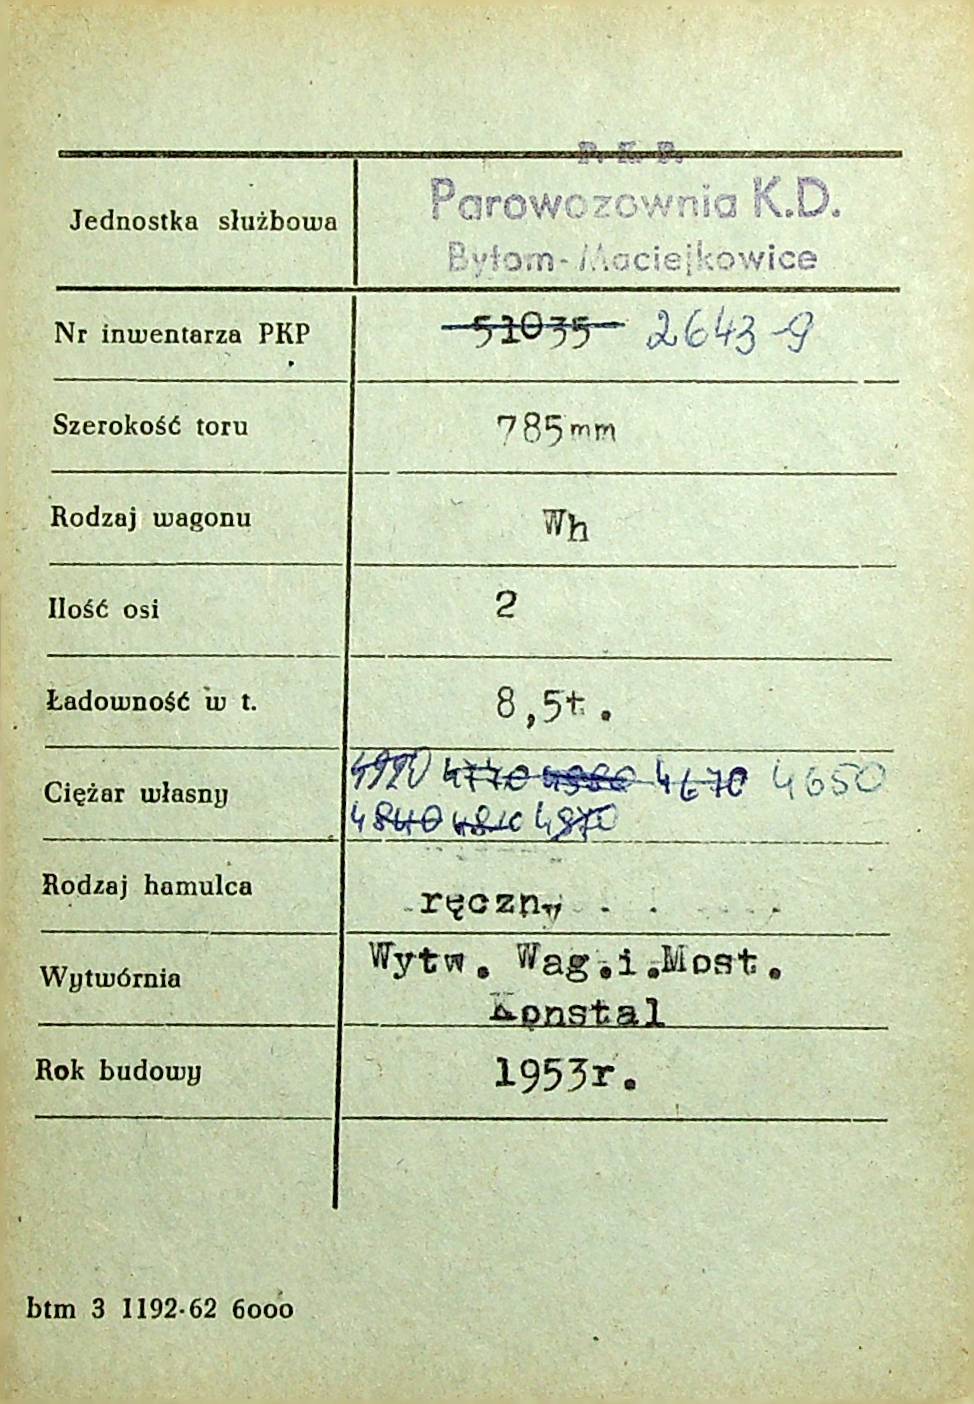 P. K. P.
Jednostka służbowa Parowozownia K.D.
Bytom-Maciejkowice
Nr inwentarza PKP 51035 2643-9
Szerokość toru 785mm
Rodzaj wagonu Wh
Ilość osi 2
Ładowność w t. 8,5t.
Ciężar własny 4920 4770 4670 4650
4840 4810 4870
Rodzaj hamulca ręczny
Wytwórnia Wytw. Wag.i.Most.
Konstal
Rok budowy 1953r.
btm 3 1192-62 6000